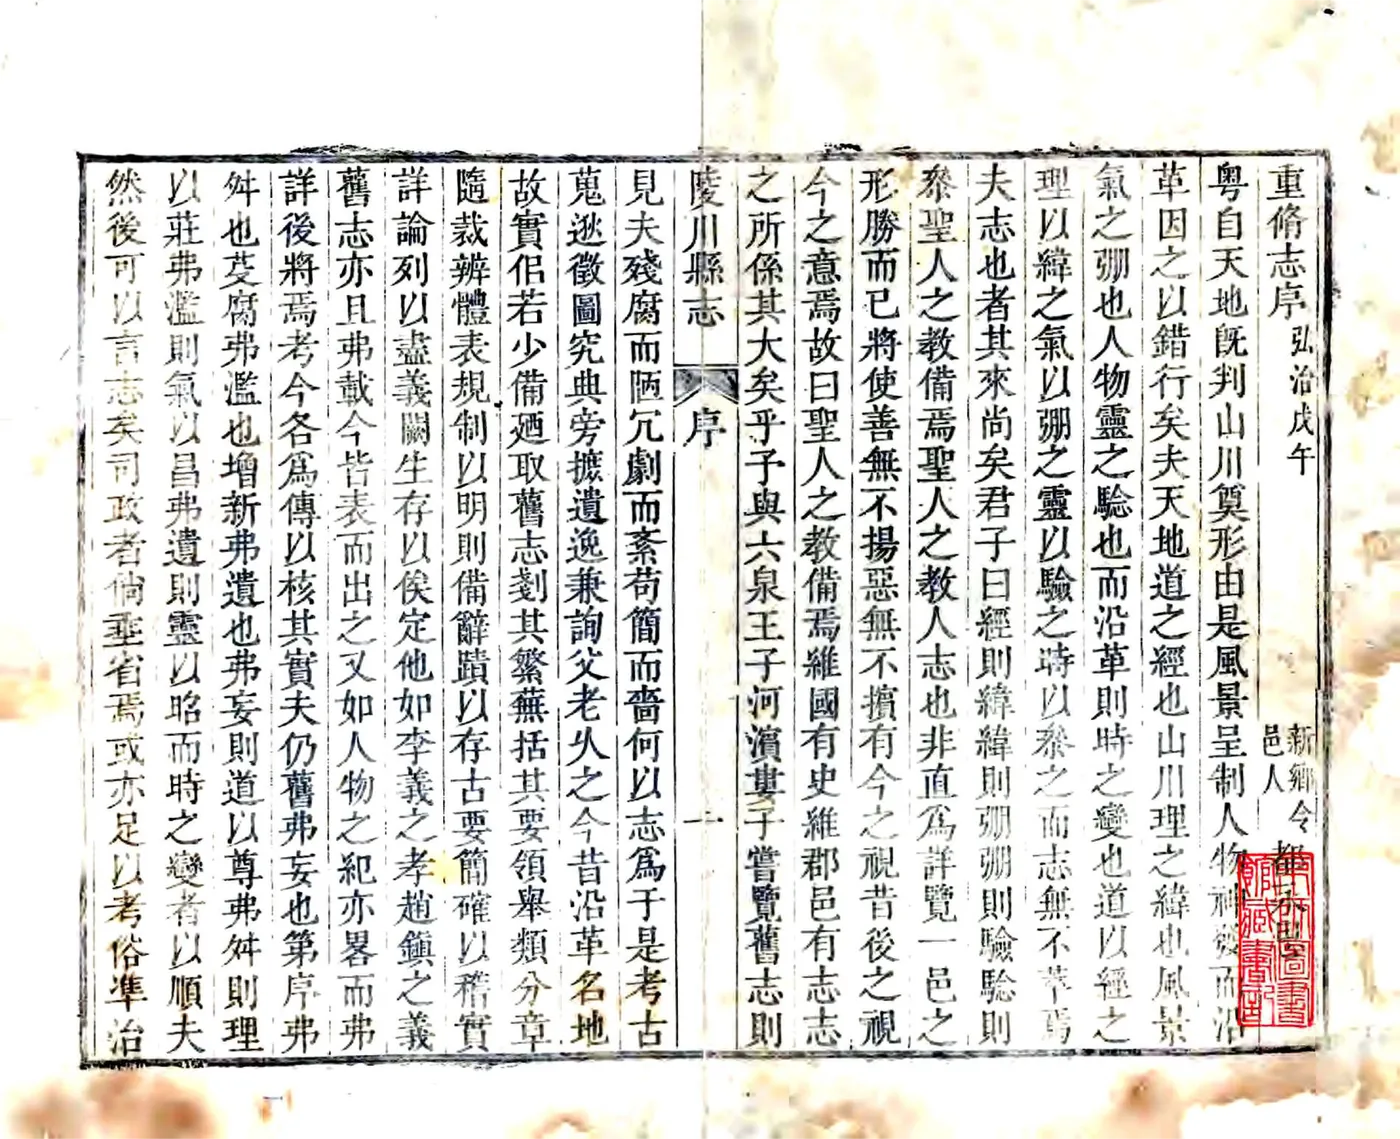 重脩志序 弘治戊午 新鄉令邑人 都
粵自天地旣判山川奠形由是風景呈制人物神發而沿
革因之以錯行矣夫天地道之經也山川理之緯也風景
氣之弸也人物靈之驗也而沿革則時之變也道以經之
理以緯之氣以弸之靈以驗之時以叅之而志無不萃焉
夫志也者其來尚矣君子曰經則緯緯則弸弸則驗驗則
叅聖人之教備焉聖人之教人志也非直爲詳覽一邑之
形勝而已將使善無不揚惡無不擯有今之視昔後之視
今之意焉故曰聖人之教備焉維國有史維郡邑有志志
之所係其大矣乎予與六泉王子河濱婁子嘗覽舊志則
陵川縣志 序 一
見夫殘腐而陋冗劇而紊苟簡而嗇何以志爲于是考古
蒐逖徵圖究典旁摭遺逸兼詢父老乆之今昔沿革名地
故實佀若少備廼取舊志剗其繁蕪括其要領舉類分章
隨裁辨體表規制以明則備辭蹟以存古要簡確以稽實
詳論列以盡義闕生存以俟定他如李義之孝趙鎭之義
舊志亦且弗載今皆表而出之又如人物之紀亦畧而弗
詳後將焉考今各爲傳以核其實夫仍舊弗妄也第序弗
舛也芟腐弗濫也增新弗遺也弗妄則道以尊弗舛則理
以莊弗濫則氣以昌弗遺則靈以昭而時之變者以順夫
然後可以言志矣司政者倘垂省焉或亦足以考俗凖治